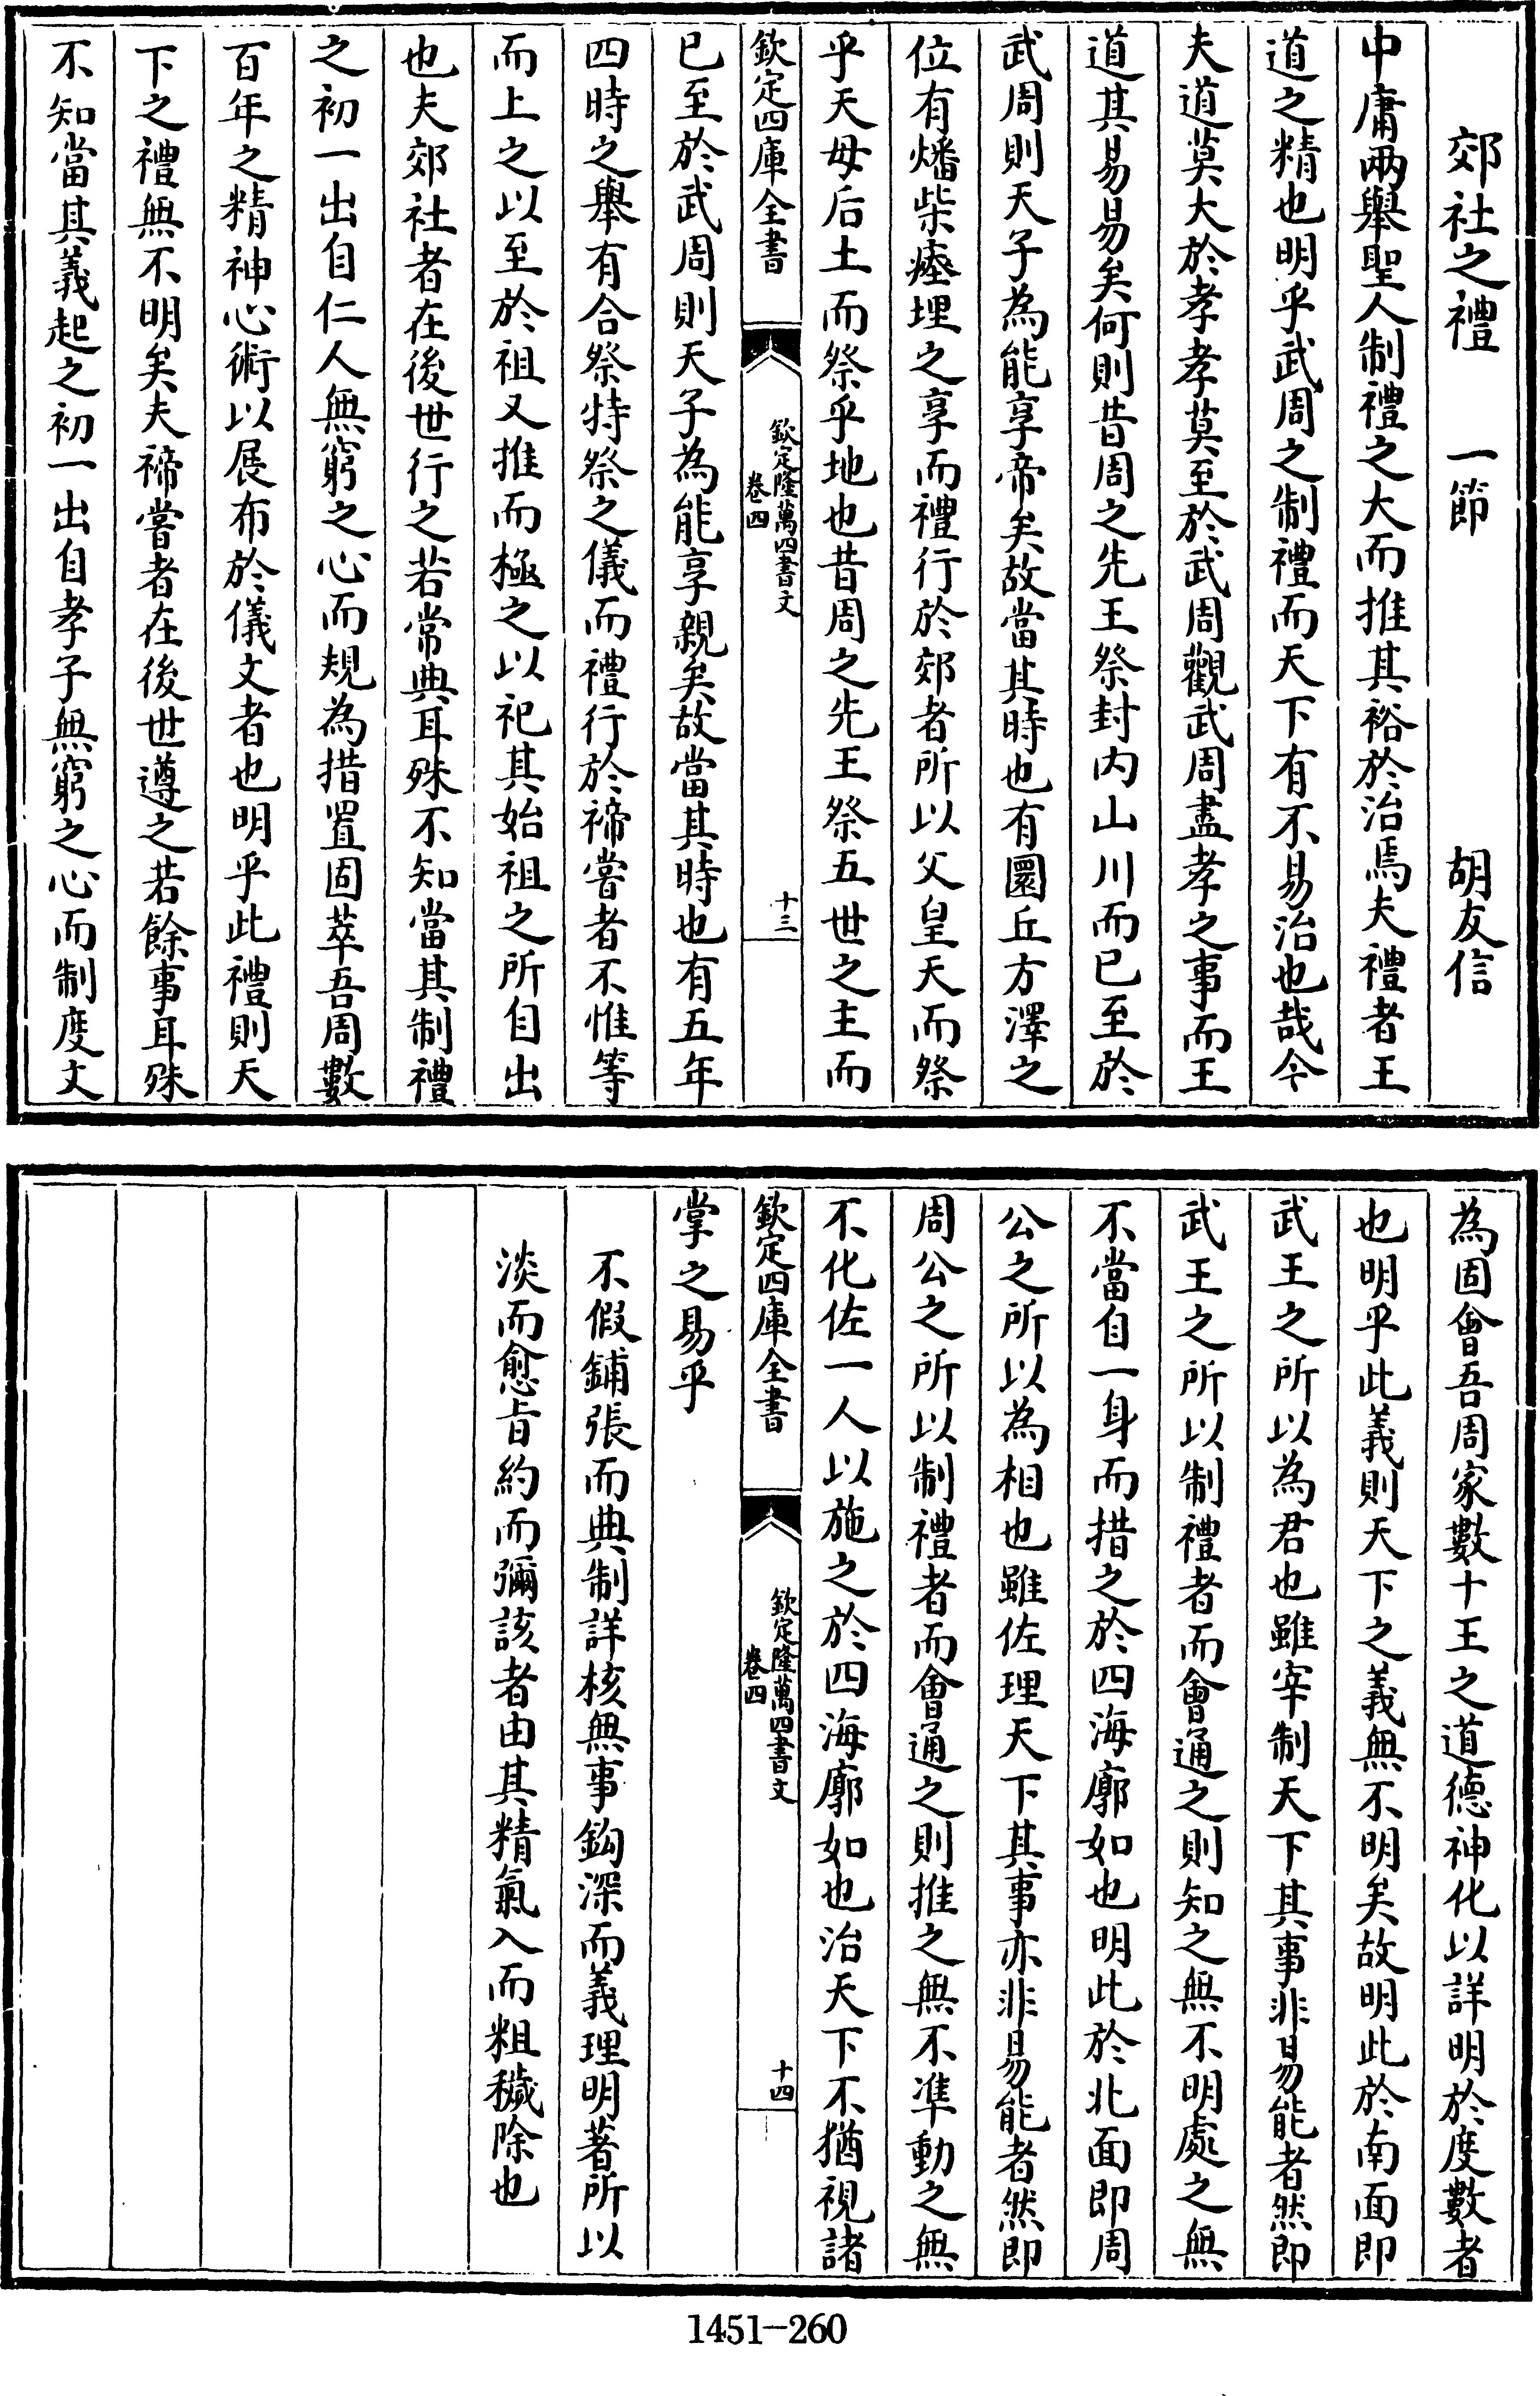 郊社之禮　一節　胡友信
中庸兩舉聖人制禮之大而推其裕於治焉夫禮者王
道之精也明乎武周之制禮而天下有不易治也哉今
夫道莫大於孝孝莫至於武周觀武周盡孝之事而王
道其易易矣何則昔周之先王祭封内山川而已至於
武周則天子為能享帝矣故當其時也有圜丘方澤之
位有燔柴瘞埋之享而禮行於郊者所以父皇天而祭
乎天母后土而祭乎地也昔周之先王祭五世之主而
欽定四庫全書
欽定隆萬四書文
卷四
十三
已至於武周則天子為能享親矣故當其時也有五年
四時之舉有合祭特祭之儀而禮行於禘嘗者不惟等
而上之以至於祖又推而極之以祀其始祖之所自出
也夫郊社者在後世行之若常典耳殊不知當其制禮
之初一出自仁人無窮之心而規為措置固萃吾周數
百年之精神心術以展布於儀文者也明乎此禮則天
下之禮無不明矣夫禘嘗者在後世遵之若餘事耳殊
不知當其義起之初一出自孝子無窮之心而制度文
為固會吾周家數十王之道德神化以詳明於度數者
也明乎此義則天下之義無不明矣故明此於南面即
武王之所以為君也雖宰制天下其事非易能者然即
武王之所以制禮者而會通之則知之無不明處之無
不當自一身而措之於四海廓如也明此於北面即周
公之所以為相也雖佐理天下其事亦非易能者然即
周公之所以制禮者而會通之則推之無不準動之無
不化佐一人以施之於四海廓如也治天下不猶視諸
欽定四庫全書
欽定隆萬四書文
卷四
十四
掌之易乎
不假鋪張而典制詳核無事鈎深而義理明著所以
淡而愈旨約而彌該者由其精氣入而粗穢除也
1451-260